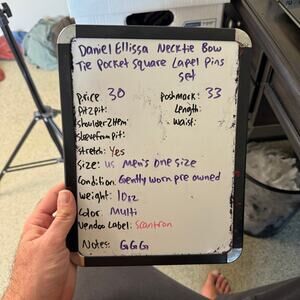 Daniel Ellissa Necktie Bow
Tie Pocket Square Lapel Pins
Set
Price 30 Poshmark: 33
Pit2Pit: Length:
Shoulder2Hem: Waist:
Sleevefrompit:
Stretch: Yes
Size: US Men's one size
Condition: Gently worn pre owned
Weight: 10oz
Color Multi
Vendoo Label: Scantron
Notes: GGG